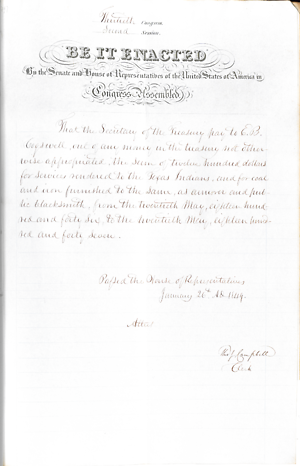 Thirtieth Congress
Second Session
BE IT ENACTED
By the Senate and House of Representatives of the United States of America in
Congress Assembled
That the Secretary of the Treasury pay to E. B.
Cogswell out of any money in the treasury not other-
wise appropriated, the sum of twelve hundred dollars
for services rendered to the Texas Indians, and for coal
and iron furnished to the same, as armorer and pub-
lic blacksmith, from the twentieth May, eighteen hund-
red and forty six, to the twentieth May, eighteen hund-
red and forty seven.
Passed the House of Representatives
January 26th AD. 1849.
Attest
Campbell
Clerk